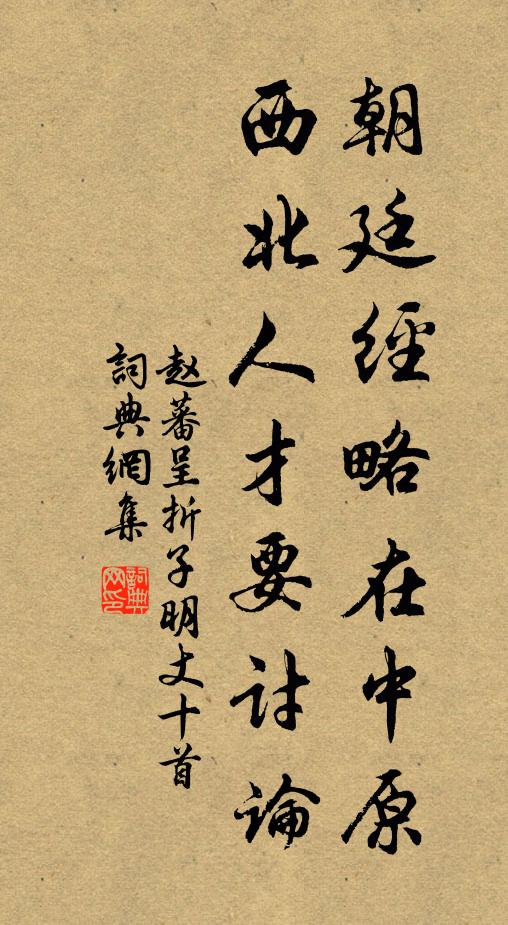 朝廷經略在中原
西北人才要討論
赵蕃呈折子明丈十首
詞典網集
詞典网印